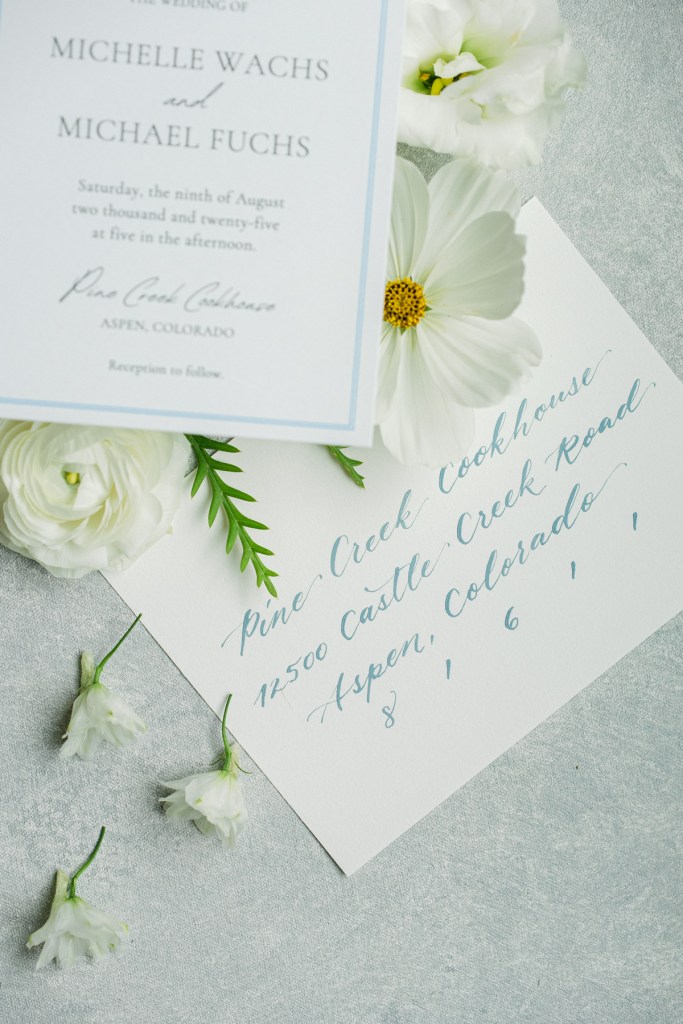 THE WEDDING OF
MICHELLE WACHS
and
MICHAEL FUCHS
Saturday, the ninth of August
two thousand and twenty-five
at five in the afternoon.
Pine Creek Cookhouse
ASPEN, COLORADO
Reception to follow.
Pine Creek Cookhouse
12500 Castle Creek Road
Aspen, Colorado
8 1 6 1 1